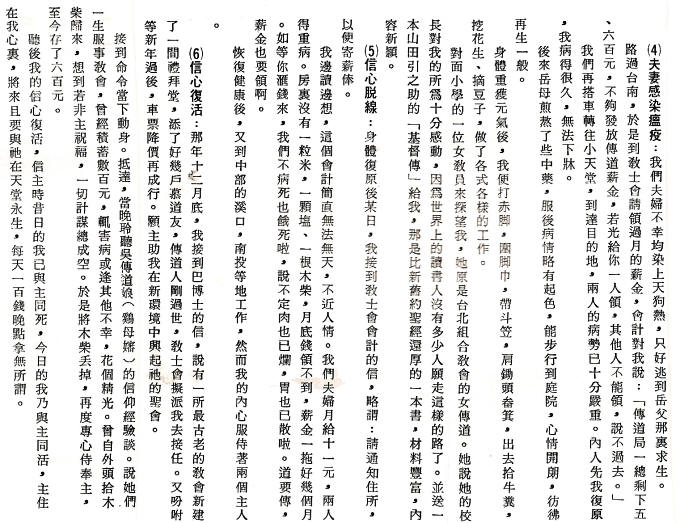 (4)夫妻感染瘟疫：我們夫婦不幸均染上天狗熱，只好逃到岳父那裏求生。
路過台南，於是到敎士會請領過月的薪金，會計對我說：「傳道局一總剩下五
、六百元，不夠發放傳道薪金，若光給你一人領，其他人不能領，說不過去。」
我們再搭車轉往小天堂，到達目的地，兩人的病勢已十分嚴重。內人先我復原
，我病得很久，無法下牀。
後來岳母煎熬了些中藥，服後病情略有起色，能步行到庭院，心情開朗，彷彿
再生一般。
身體重獲元氣後，我便打赤脚，圍脚巾，帶斗笠，肩鋤頭畚箕，出去拾牛糞，
挖花生、摘豆子，做了各式各樣的工作。
對面小學的一位女敎員來探望我，她原是台北組合敎會的女傳道。她說她的校
長對我的所爲十分感動，因爲世界上的讀書人沒有多少人願走這樣的路了。並送一
本山田引之助的「基督傳」給我，那是比新舊約聖經還厚的一本書，材料豐富，內
容新穎。
(5)信心脱線：身體復原後某日，我接到敎士會會計的信，略謂：請通知住所，
以便寄薪俸。
我邊讀邊想，這個會計簡直無法無天，不近人情。我們夫婦月給十一元，兩人
得重病。房裏沒有一粒米，一顆塩、一根木柴，月底錢領不到，薪金一拖好幾個月
。如等你滙錢來，我們不病死也餓死啦，說不定肉也已爛，胃也已散啦。道要傳，
薪金也要領啊。
恢復健康後，又到中部的溪口，南投等地工作，然而我的內心服侍著兩個主人
。
(6)信心復活：那年十二月底，我接到巴博士的信，說有一所最古老的敎會新建
了一間禮拜堂，添了好幾戶慕道友，傳道人剛過世，敎士會擬派我去接任。又吩咐
等新年過後，車票降價再成行。願主助我在新環境中興起祂的聖會。
接到命令當下動身。抵達，當晚聆聽吳傳道娘（鷄母嬸）的信仰經驗談。說她們
一生服事敎會，曾經積蓄數百元，輒害病或逢其他不幸，花個精光。曾自外頭拾木
柴歸來，想到若非主祝福，一切計謀總成空。於是將木柴丢掉，再度專心侍奉主，
至今存了六百元。
聽後我的信心復活，信主時昔日的我已與主同死，今日的我乃與主同活，主住
在我心裏，將來且要與祂在天堂永生，每天一百錢晚點拿無所謂。